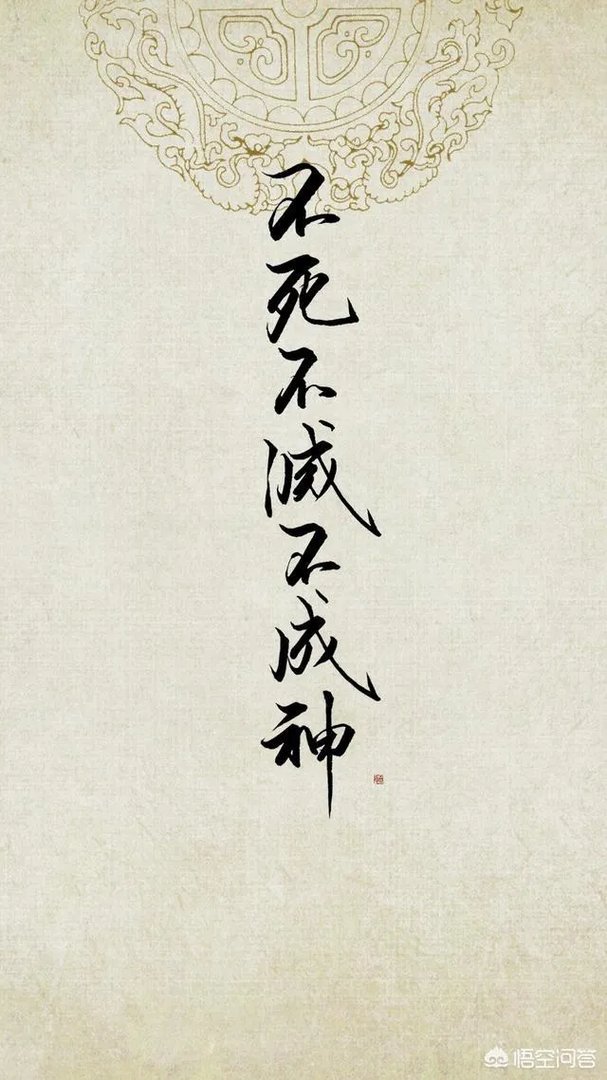 不死不滅不成神
悟空问答